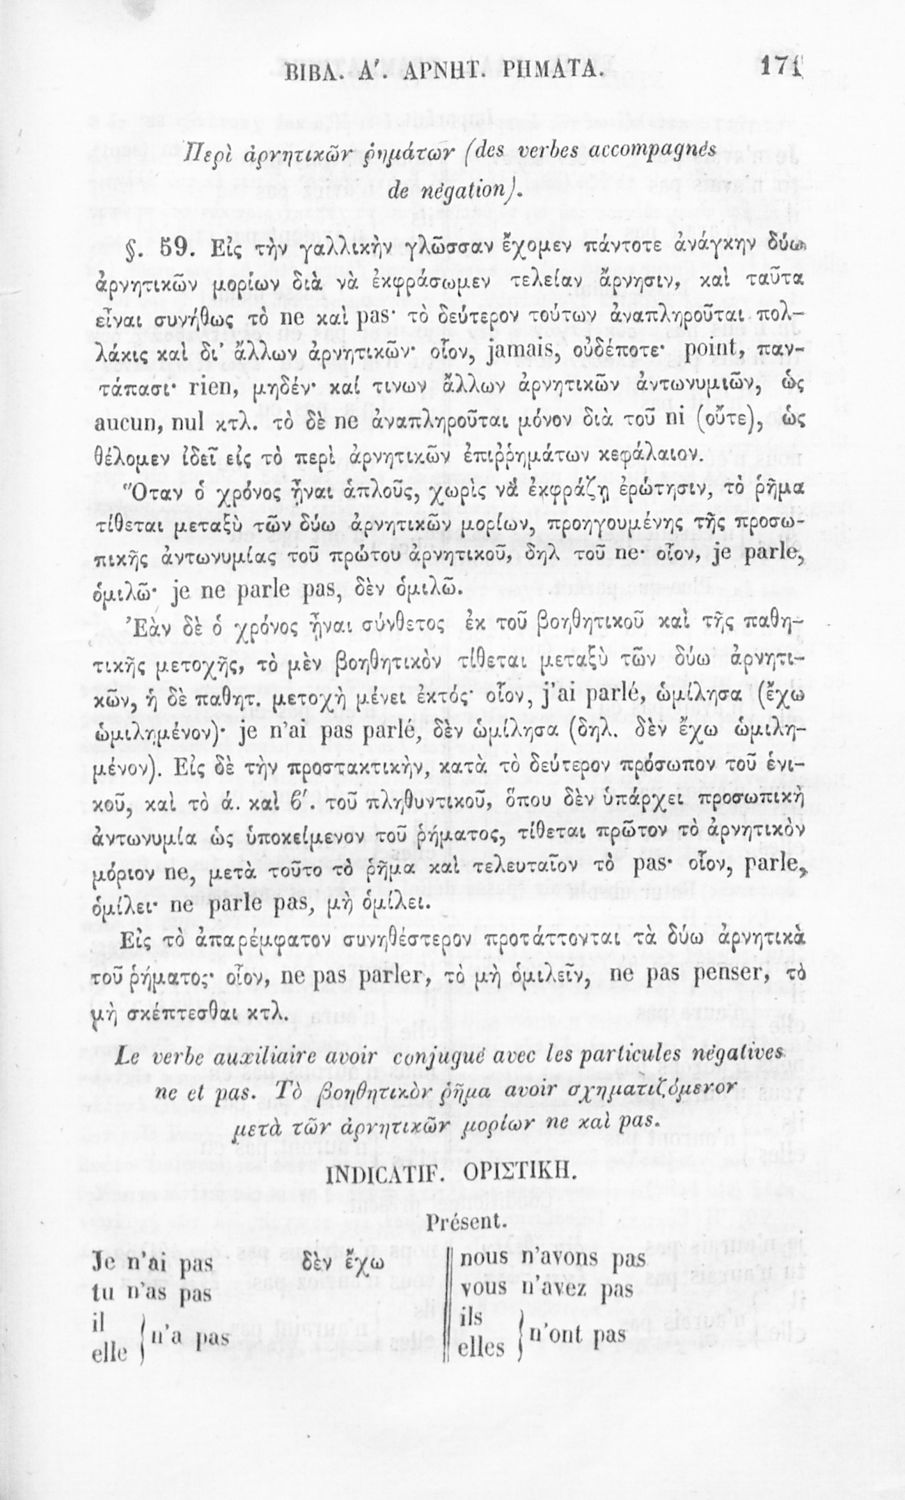 ΒΙΒΛ. Α΄. ΑΡΝΗΤ. ΡΗΜΑΤΑ. 171
Περὶ ἀρνητικῶν ῥημάτων (des verbes accompagnés
de négation).
§. 59. Εἰς τὴν γαλλικὴν γλῶσσαν ἔχομεν πάντοτε ἀνάγκην δύω
ἀρνητικῶν μορίων διὰ νὰ ἐκφράσωμεν τελείαν ἄρνησιν, καὶ ταῦτα
εἶναι συνήθως τὸ ne καὶ pas· τὸ δεύτερον τούτων ἀναπληροῦται πολ-
λάκις καὶ δι' ἄλλων ἀρνητικῶν· οἷον, jamais, οὐδέποτε· point, παν-
τάπασι· rien, μηδέν· καί τινων ἄλλων ἀρνητικῶν ἀντωνυμιῶν, ὡς
aucun, nul κτλ. τὸ δὲ ne ἀναπληροῦται μόνον διὰ τοῦ ni (οὔτε), ὡς
θέλομεν ἰδεῖ εἰς τὸ περὶ ἀρνητικῶν ἐπιῤῥημάτων κεφάλαιον.
Ὅταν ὁ χρόνος ᾖναι ἁπλοῦς, χωρὶς νὰ ἐκφράζῃ ἐρώτησιν, τὸ ῥῆμα
τίθεται μεταξὺ τῶν δύω ἀρνητικῶν μορίων, προηγουμένης τῆς προσω-
πικῆς ἀντωνυμίας τοῦ πρώτου ἀρνητικοῦ, δηλ τοῦ ne· οἷον, je parle,
ὁμιλῶ· je ne parle pas, δὲν ὁμιλῶ.
Ἐὰν δὲ ὁ χρόνος ᾖναι σύνθετος ἐκ τοῦ βοηθητικοῦ καὶ τῆς παθη-
τικῆς μετοχῆς, τὸ μὲν βοηθητικὸν τίθεται μεταξὺ τῶν δύω ἀρνητι-
κῶν, ἡ δὲ παθητ. μετοχὴ μένει ἐκτός· οἷον, j'ai parlé, ὡμίλησα (ἔχω
ὡμιλημένον)· je n'ai pas parlé, δὲν ὡμίλησα (δηλ. δὲν ἔχω ὡμιλη-
μένον). Εἰς δὲ τὴν προστακτικὴν, κατὰ τὸ δεύτερον πρόσωπον τοῦ ἑνι-
κοῦ, καὶ τὸ ά. καὶ ϐ΄. τοῦ πληθυντικοῦ, ὅπου δὲν ὑπάρχει προσωπικὴ
ἀντωνυμία ὡς ὑποκείμενον τοῦ ῥήματος, τίθεται πρῶτον τὸ ἀρνητικὸν
μόριον ne, μετὰ τοῦτο τὸ ῥῆμα καὶ τελευταῖον τὸ pas· οἷον, parle,
ὁμίλει· ne parle pas, μὴ ὁμίλει.
Εἰς τὸ ἀπαρέμφατον συνηθέστερον προτάττονται τὰ δύω ἀρνητικὰ
τοῦ ῥήματος· οἷον, ne pas parler, τὸ μὴ ὁμιλεῖν, ne pas penser, τὸ
μὴ σκέπτεσθαι κτλ.
Le verbe auxiliaire avoir conjugué avec les particules négatives
ne et pas. Τὸ βοηθητικὸν ῥῆμα avoir σχηματιζόμενον
μετὰ τῶν ἀρνητικῶν μορίων ne καὶ pas.
INDICATIF. ΟΡΙΣΤΙΚΗ.
Présent.
Je n'ai pas δὲν ἔχω nous n'avons pas
tu n'as pas vous n'avez pas
il ils
n'a pas n'ont pas
elle elles